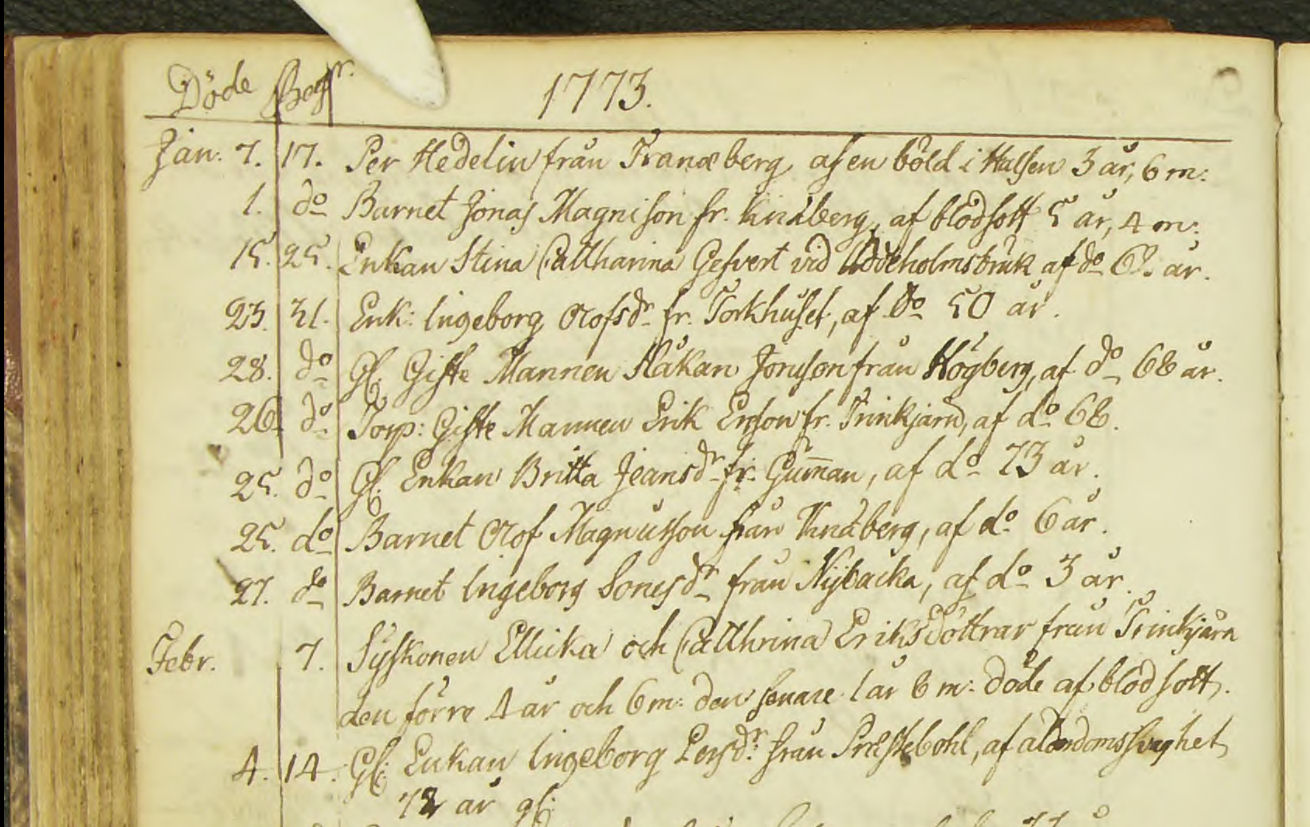 Döde Begr. 1773.
Jan. 7. 17. Per Hedelin från Tranæberg, af en böld i Halsen 3 år, 6 m:
1. do Barnet Jonas Magnison fr. Knåberg, af blodsott 5 år, 4 m:
15. 25. Enkan Stina Catharina Gefvert vid Uddeholmsbruk af do 6 år.
23. 31. Enk: Ingeborg Olofsdr fr. Torkhuset, af do 50 år.
28. do Gl. Gifte Mannen Håkan Jonsson från Högberg, af do 68 år.
26. do Torp: Gifte Mannen Erik Ersson fr. Trinkjärn, af do 68.
25. do Gl. Enkan Britta Jeansdr fr. Gum̄an, af do 73 år.
25. do Barnet Olof Magnusson från Knåberg, af do 6 år.
27. do Barnet Ingeborg Jonsdr från Nybacka, af do 3 år.
Febr. 7. Syskonen Ellicka och Catthrina Eriksdöttrar från Trinkjärn
den förre 4 år och 6 m: den senare 1 år 6 m: döde af blodsott.
4. 14. Gl. Enkan Ingeborg Persdr från Præstebohl, af ålderdomssvaghet
72 år gl.